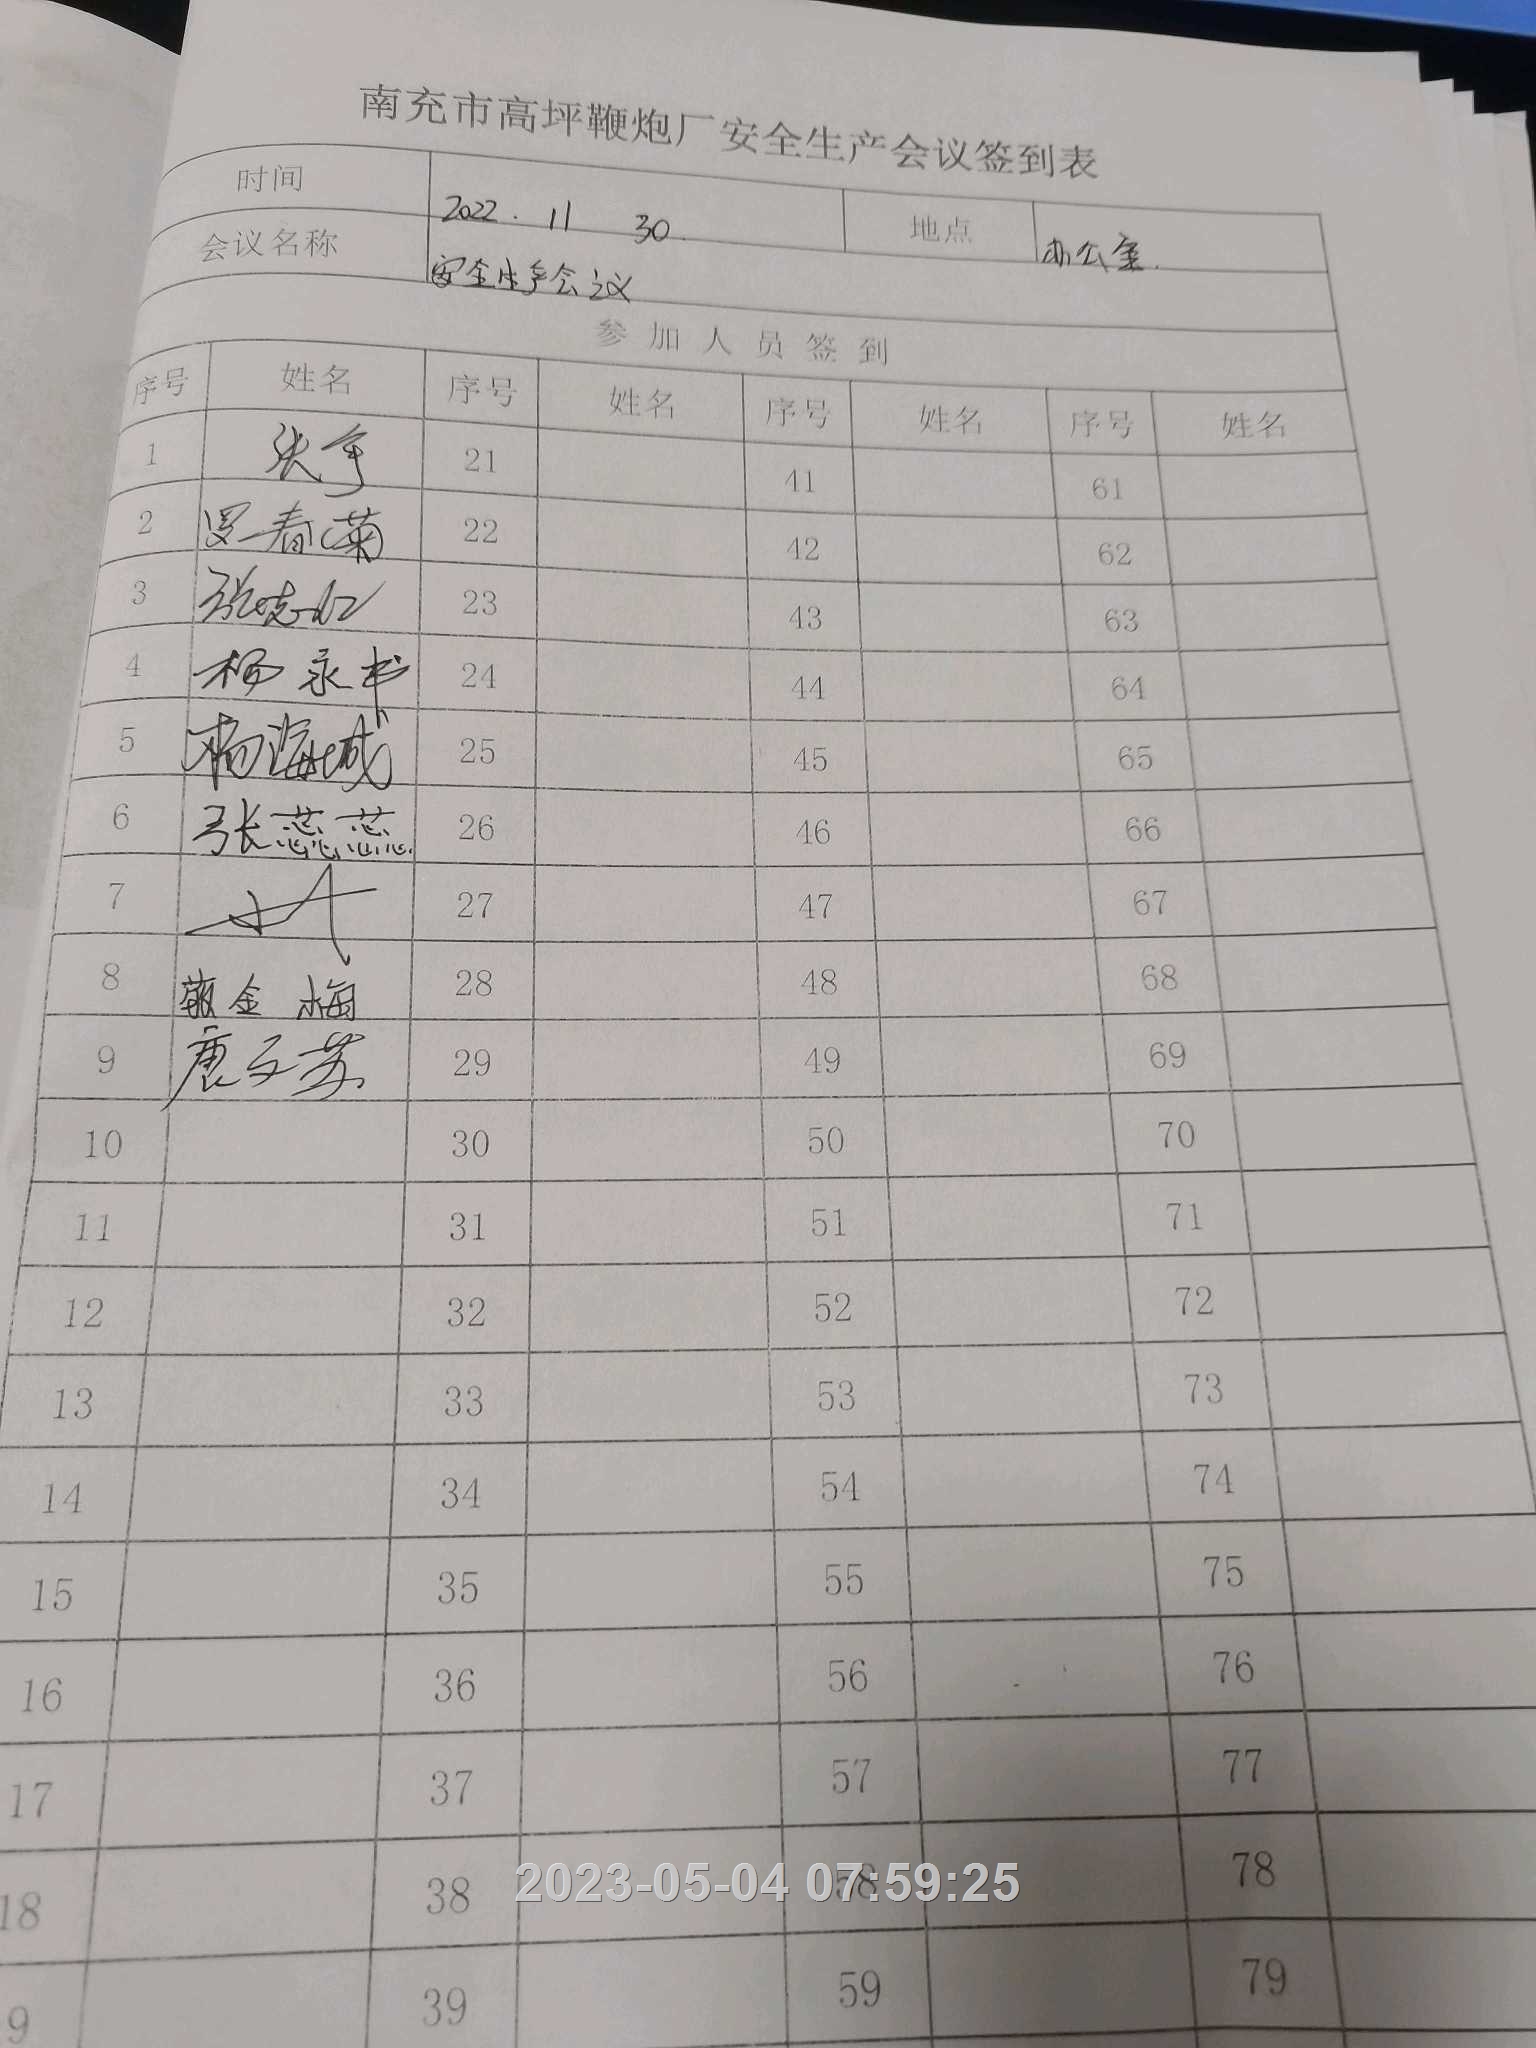 南充市高坪鞭炮厂安全生产会议签到表
时间 2022.11 30. 地点 办公室.
会议名称 安全生产会议
参加人员签到
序号 姓名 序号 姓名 序号 姓名 序号 姓名
1 张军 21 41 61
2 罗春菊 22 42 62
3 23 43 63
4 杨永书 24 44 64
5 杨海城 25 45 65
6 张蕊蕊 26 46 66
7 27 47 67
8 金梅 28 48 68
9 唐文芳 29 49 69
10 30 50 70
11 31 51 71
12 32 52 72
13 33 53 73
14 34 54 74
15 35 55 75
16 36 56 76
17 37 57 77
18 38 58 78
9 39 59 79
2023-05-04 07:59:25